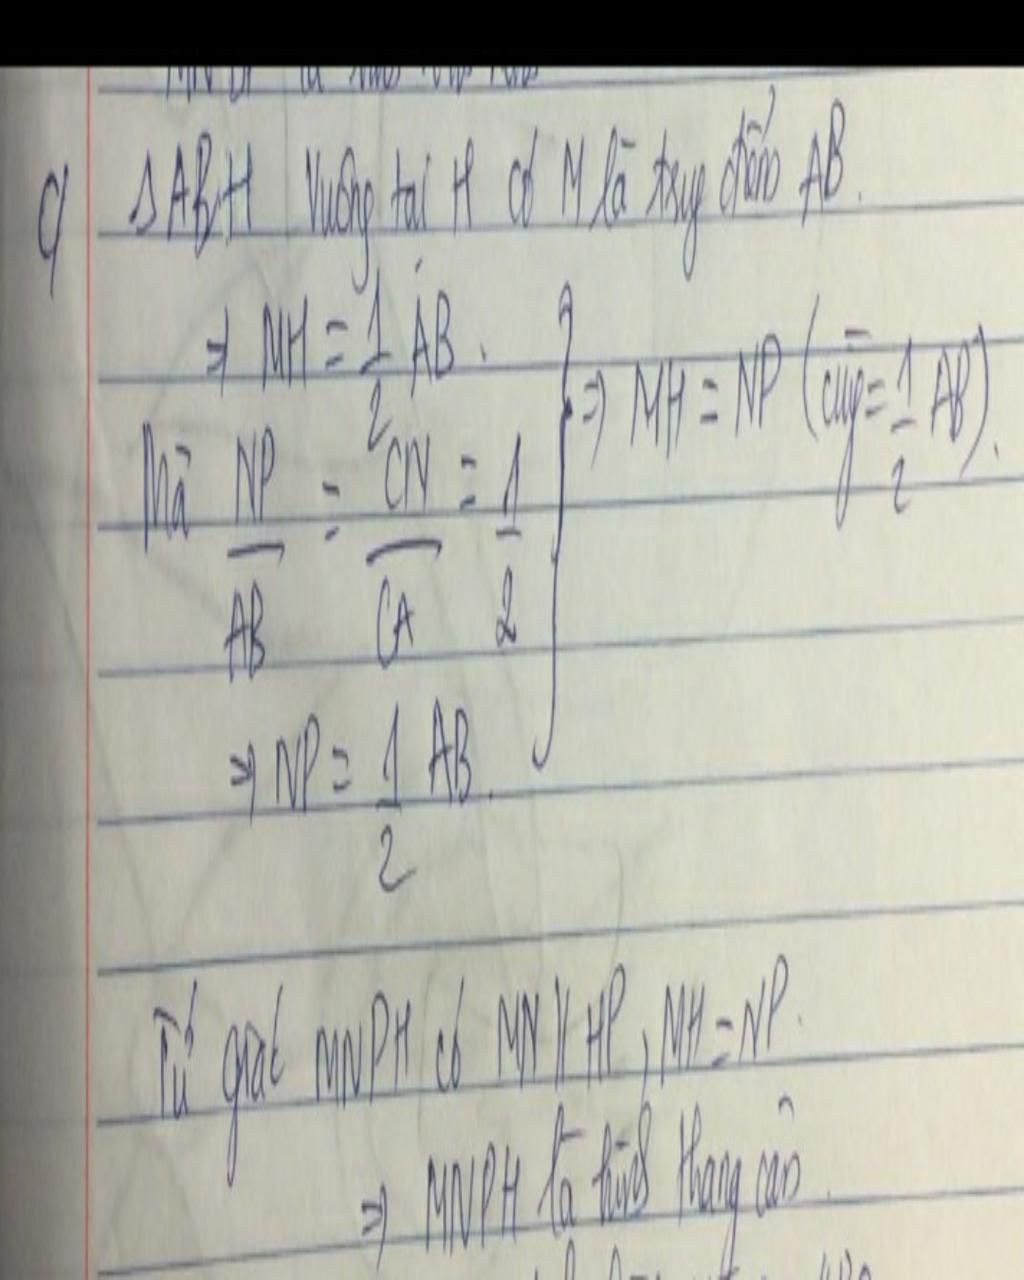 c) ΔABH vuông tại H có M là trung điểm AB.
⇒ MH = 1/2 AB.
Mà NP/AB = CN/CA = 1/2
⇒ NP = 1/2 AB.
⇒ MH = NP (cùng = 1/2 AB).
Tứ giác MNPH có MN // HP, MH = NP.
⇒ MNPH là hình thang cân.